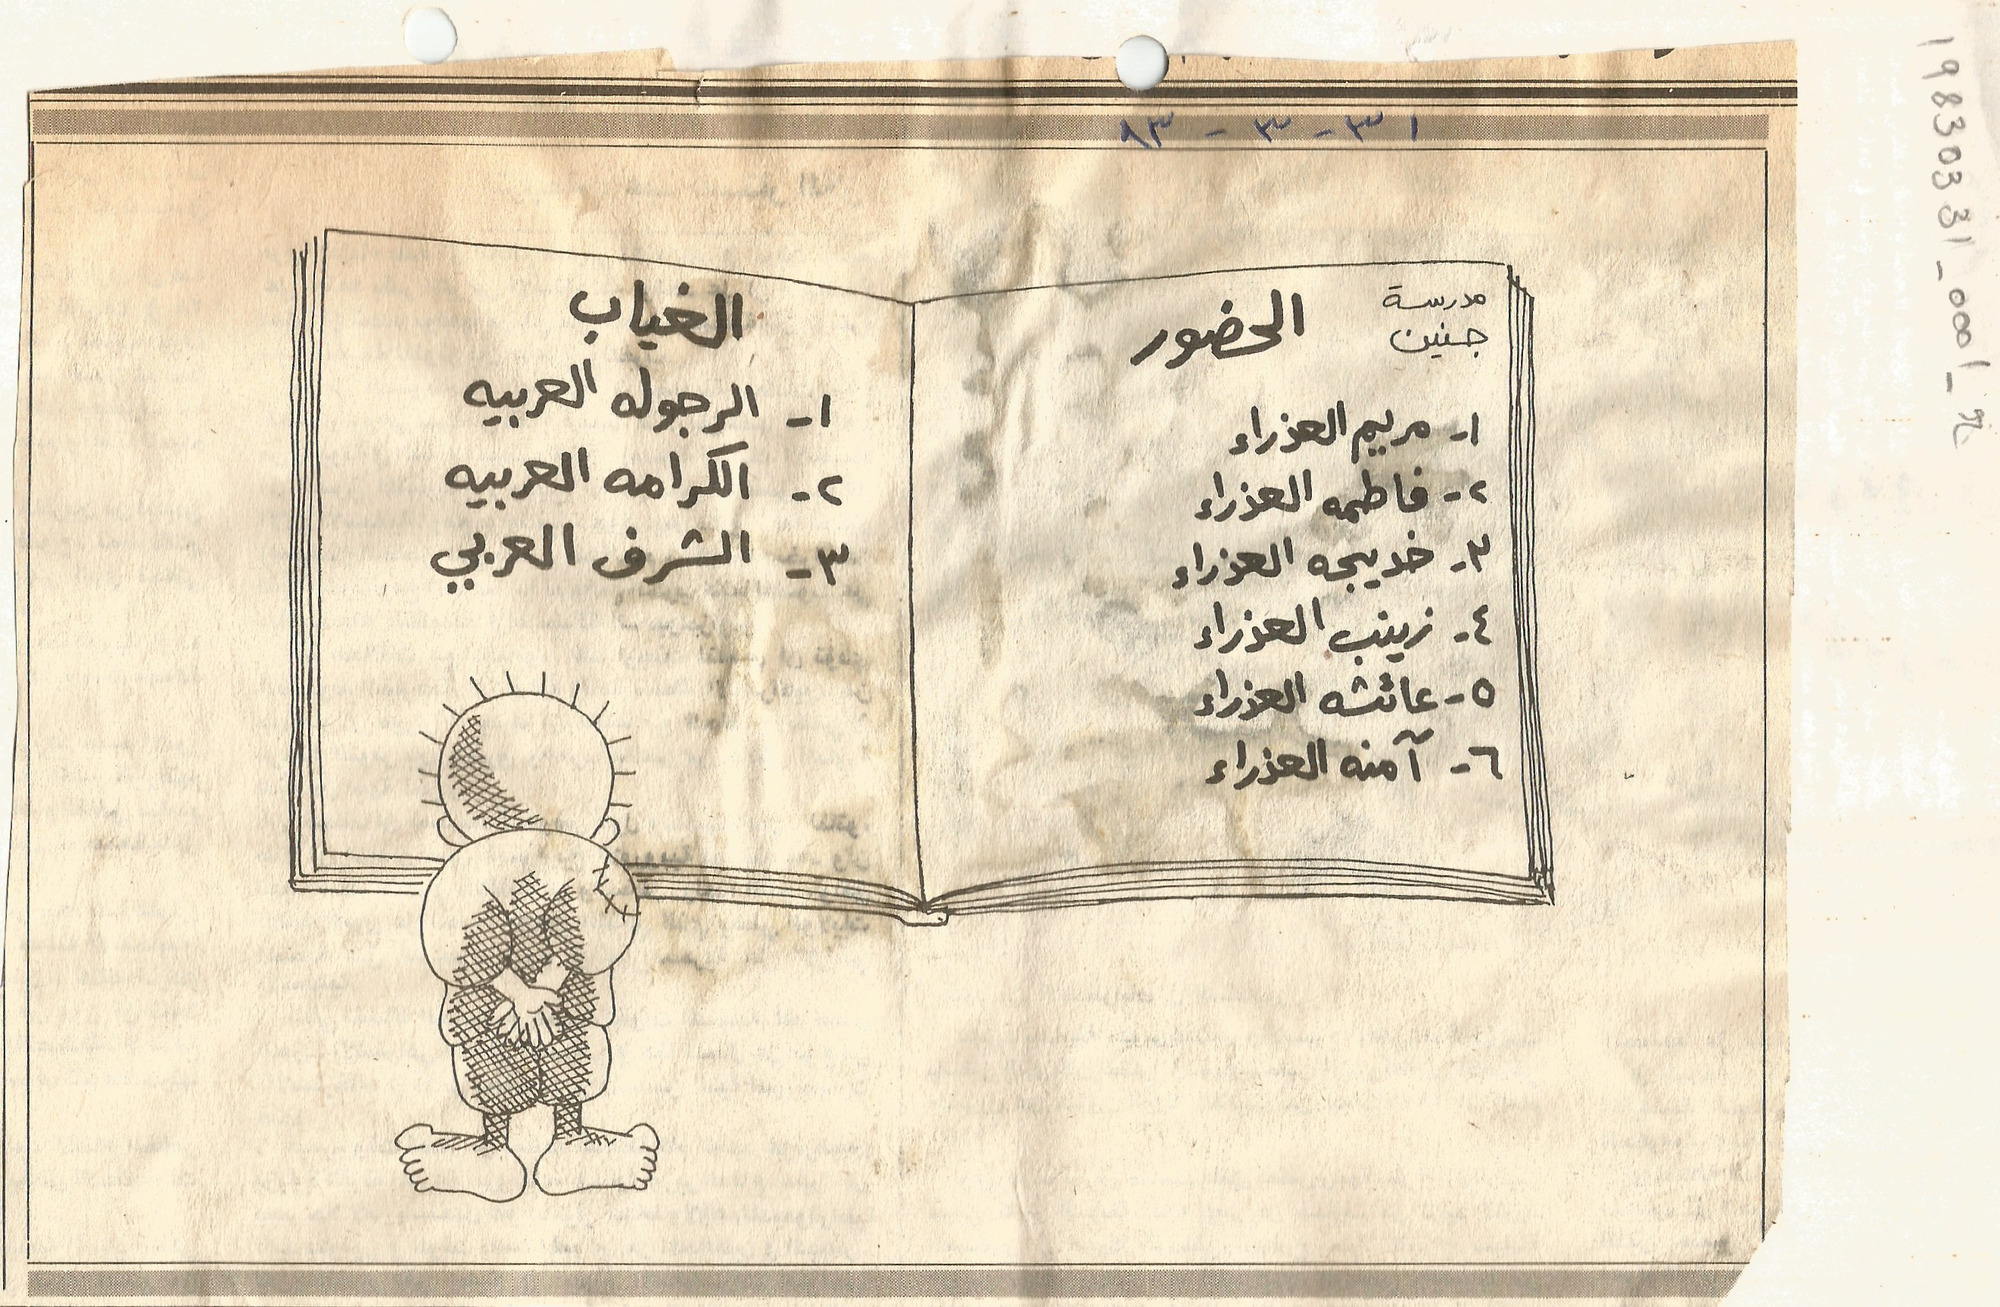 ٣١ - ٣ - ٨٣
مدرسة
جنين
الحضور
١- مريم العذراء
٢- فاطمه العذراء
٣- خديجه العذراء
٤- زينب العذراء
٥- عائشه العذراء
٦- آمنه العذراء
الغياب
١- الرجوله العربيه
٢- الكرامه العربيه
٣- الشرف العربي